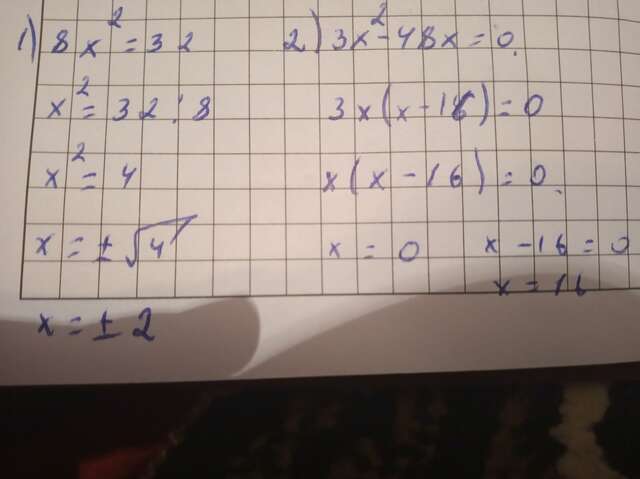 1) 8x² = 32
x² = 32 : 8
x² = 4
x = ±√4
x = ±2
2) 3x² - 48x = 0
3x(x - 16) = 0
x(x - 16) = 0
x = 0 x - 16 = 0
x = 16